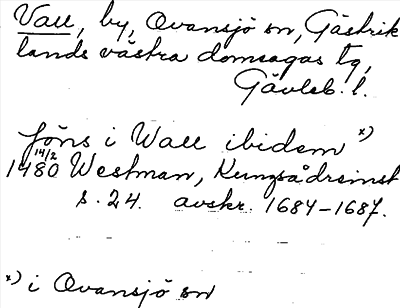 Vall, by, Ovansjö sn, Gästrik
lands västra domsagas tg,
Gävleb. l.
Jöns i Wall ibidem x)
14/2 1480 Westman, Kungsådreinst
s. 24. avskr. 1684-1687.
x) i Ovansjö sn